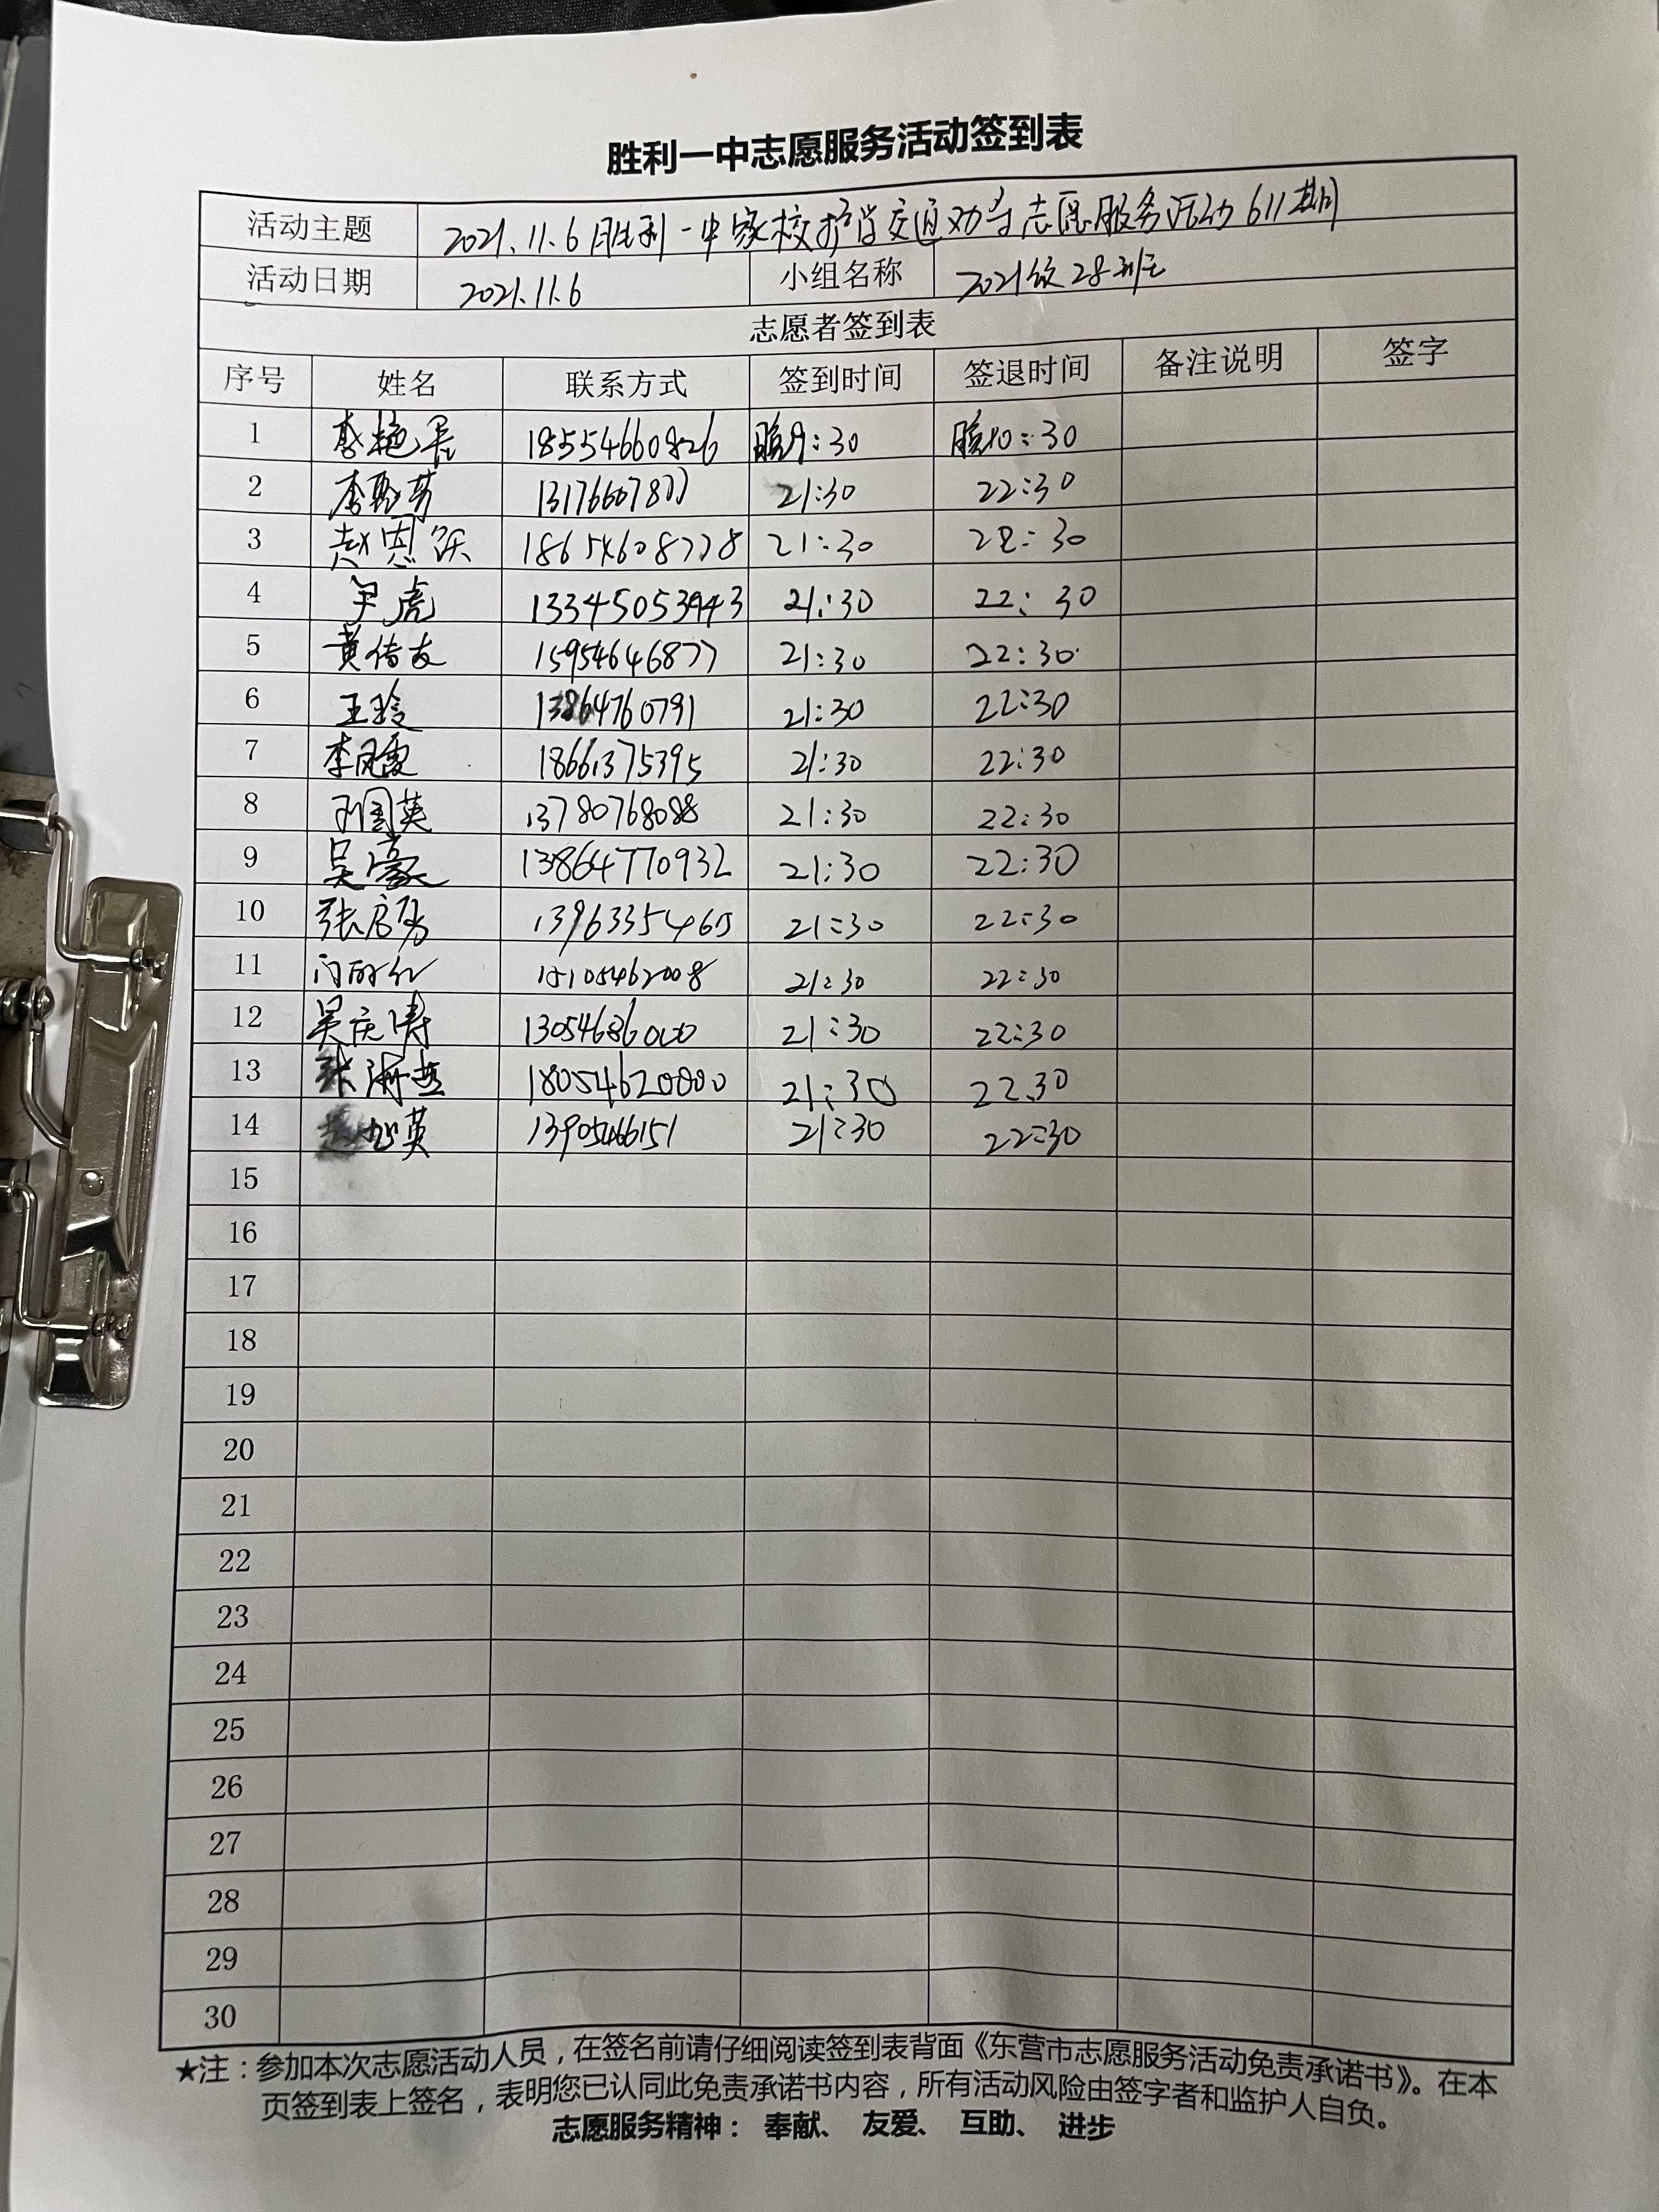 胜利一中志愿服务活动签到表
活动主题 2021.11.6胜利一中家校护学交通劝导志愿服务活动611期
活动日期 2021.11.6 小组名称 2021级28班
志愿者签到表
序号 姓名 联系方式 签到时间 签退时间 备注说明 签字
1 18554660826 晚9:30 晚10:30
2 李聪芳 13176607877 21:30 22:30
3 赵恩跃 18654608778 21:30 22:30
4 尹虎 13345053943 21:30 22:30
5 黄信友 15954646877 21:30 22:30
6 王玲 13864760791 21:30 22:30
7 李凤霞 18661375395 21:30 22:30
8 国英 13780768088 21:30 22:30
9 吴豪 13864770932 21:30 22:30
10 张 21:30 22:30
11 15105462008 21:30 22:30
12 吴庆涛 13054686000 21:30 22:30
13 张海燕 18054620000 21:30 22.30
14 英 13905466151 21:30 22:30
15
16
17
18
19
20
21
22
23
24
25
26
27
28
29
30
★注：参加本次志愿活动人员，在签名前请仔细阅读签到表背面《东营市志愿服务活动免责承诺书》。在本
页签到表上签名，表明您已认同此免责承诺书内容，所有活动风险由签字者和监护人自负。
志愿服务精神： 奉献、 友爱、 互助、 进步